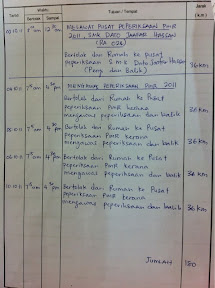 Waktu
Tujuan / Tempat
Jarak
(KM)
Bertolak
Sampai
MELAWAT PUSAT PEPERIKSAAN PMR
2011, SMK DATO JAAFAR HASSAN
(RA 026)
Bertolak dari Rumah ke pusat
peperiksaan S.M.K Dato Jaafar Hassan
(Pergi dan Balik)
36 KM
MENGAWAS PEPERIKSAAN PMR 2011
Bertolak dari Rumah ke Pusat
Peperiksaan PMR kerana
mengawas peperiksaan dan balik
36 KM
Bertolak dari Rumah ke Pusat
Peperiksaan PMR kerana
mengawas peperiksaan dan balik
36 KM
Bertolak dari Rumah ke Pusat
peperiksaan PMR kerana
mengawas peperiksaan dan balik
36 KM
Bertolak dari Rumah ke Pusat
peperiksaan PMR kerana
mengawas peperiksaan dan balik
36 KM
JUMLAH
180